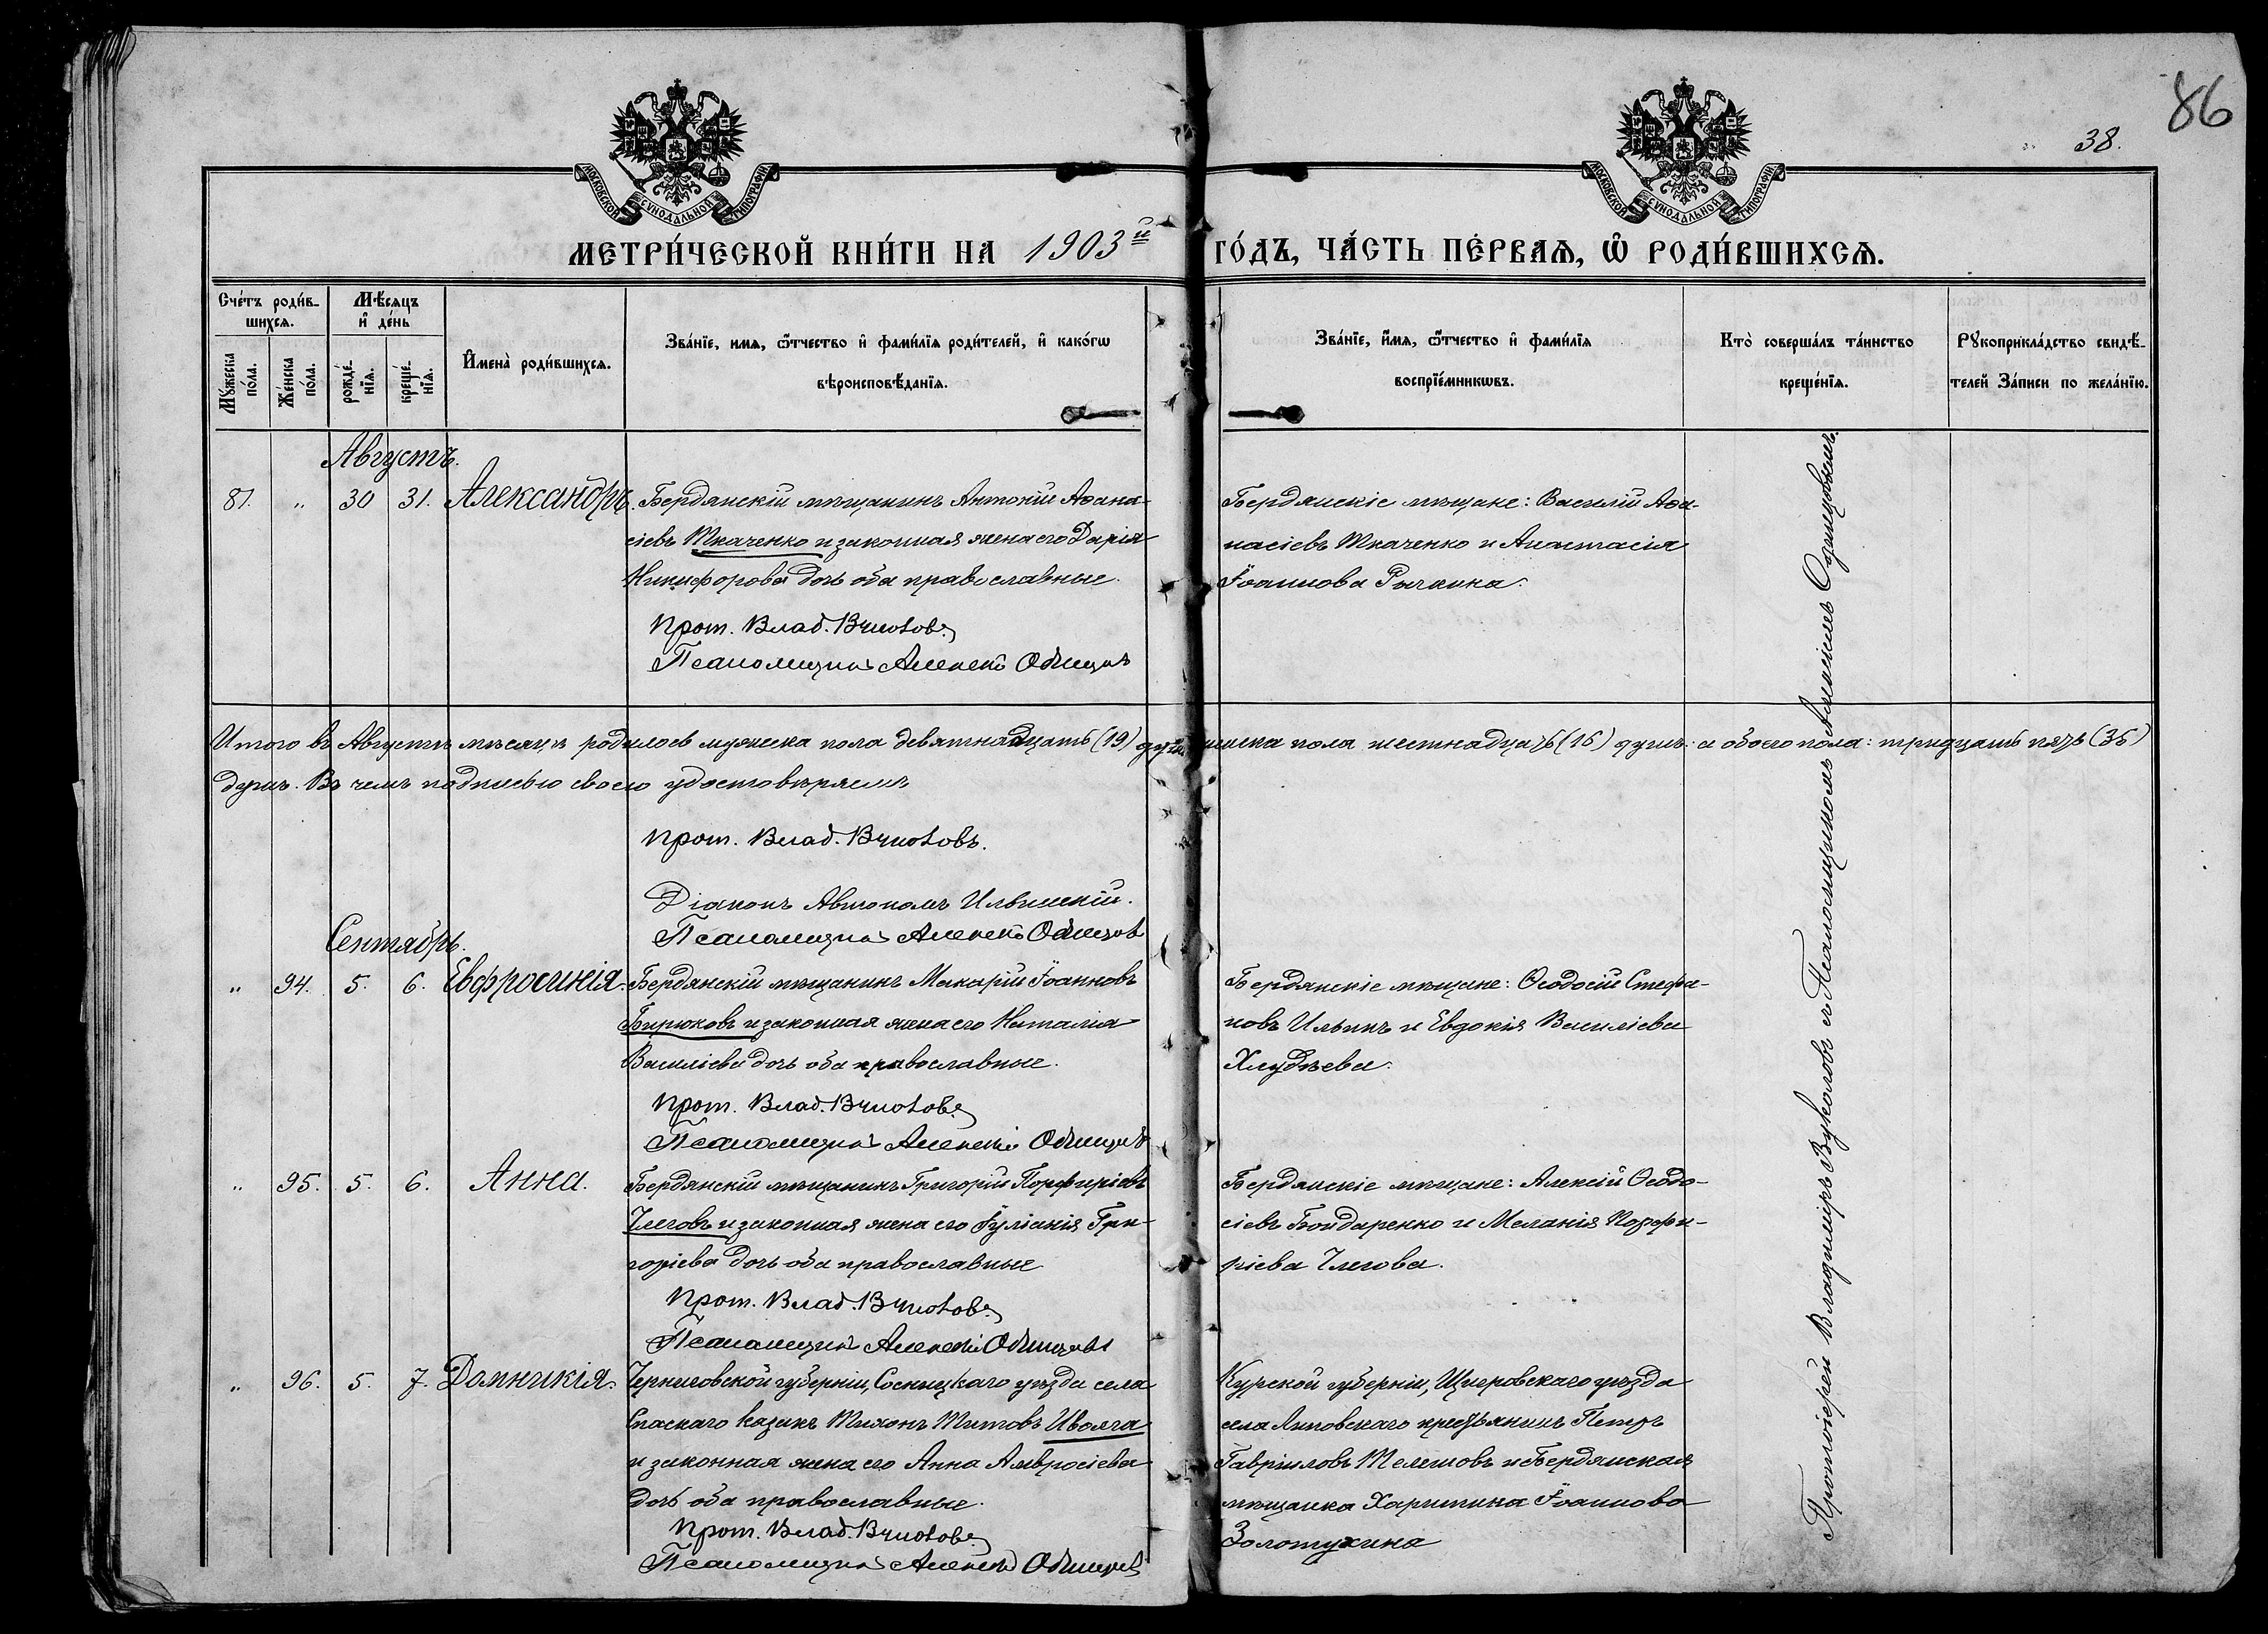 86
38.
МОСКОВСКОЙ СУНОДАЛЬНОЙ ТИПОГРАФІИ
МОСКОВСКОЙ СУНОДАЛЬНОЙ ТИПОГРАФІИ
МЕТРИ́ЧЕСКОЙ КНИ́ГИ НА 1903й ГО́ДЪ, ЧА́СТЬ ПЕ́РВАѦ, Ѡ РОДИ́ВШИХСѦ.
Сче́тъ роди́в-
шихсѧ.
Мꙋ́жеска по́ла.
Же́нска по́ла.
Мѣ́сѧцъ
и҆ де́нь
рожде́-
нїѧ.
креще́-
нїѧ.
И҆мена̀ роди́вшихсѧ.
Зва́нїе, имѧ, ѻ҆́тчество и҆ фами́лїѧ роди́телей, и҆ како́гѡ
вѣроисповѣ́данїѧ.
Зва́нїе, и҆́мѧ, ѻ҆́тчество и҆ фами́лїѧ
воспрїе́мникѡвъ.
Кто̀ соверша́лъ та́инство
креще́нїѧ.
Рꙋкоприкла́дство свидѣ́-
телей За́писи по жела́нїю.
Августъ.
81. „ 30 31. Александръ.
Бердянскій мѣщанинъ Антоній Аѳана-
сіевъ Ткаченко и законная жена его Дарія
Никифорова дочь оба православные.
Прот. Влад. Вуколовъ
Псаломщикъ Алексій Одинцовъ
Бердянскіе мѣщане: Василій Аѳа-
насіевъ Ткаченко и Анастасія
Іоаннова Рычкина.
Итого въ Августѣ мѣсяцѣ родилось мужеска пола девятнадцать (19) душъ женска пола шестнадцать (16) душъ: а обоего пола: тридцать пять (35)
душъ. Въ чемъ подписью своею удостовѣряемъ
Прот. Влад. Вуколовъ.
Діаконъ Автономъ Ильинскій.
Псаломщикъ Алексій Одинцовъ
Сентябрь.
„ 94. 5. 6. Евфросинія.
Бердянскій мѣщанинъ Макарій Іоанновъ
Бирюковъ и законная жена его Наталія
Василіева дочь оба православные.
Прот. Влад. Вуколовъ
Псаломщикъ Алексій Одинцовъ
Бердянскіе мѣщане: Ѳеодосій Стефа-
новъ Ильинъ и Евдокія Василіева
Хлудѣева.
„ 95. 5. 6. Анна.
Бердянскій мѣщанинъ Григорій Порфиріевъ
Члеговъ и законная жена его Іуліанія Гри-
горіева дочь оба православные
Прот. Влад. Вуколовъ
Псаломщикъ Алексій Одинцовъ
Бердянскіе мѣщане: Алексій Ѳеодо-
сіевъ Бондаренко и Меланія Порфи-
ріева Члегова.
„ 96. 5. 7. Домникія.
Черниговской губерніи, Сосницкаго уѣзда села
Спаскаго козакъ Тихонъ Титовъ Иволга
и законная жена его Анна Амвросіева
дочь оба православные.
Прот. Влад. Вуколовъ
Псаломщикъ Алексій Одинцовъ
Курской губерніи, Щигровскаго уѣзда
села Липовскаго крестьянинъ Петръ
Гавріиловъ Телешовъ и Бердянская
мѣщанка Харитина Іоаннова
Золотухина
Протоіерей Владимиръ Вуколовъ съ Псаломщикомъ Алексіемъ Одинцовымъ.